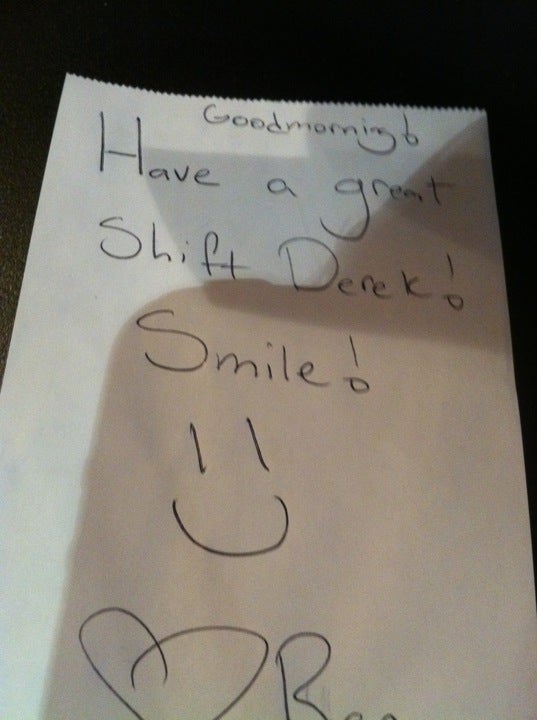 Goodmorning!
Have a great
Shift Derek!
Smile!